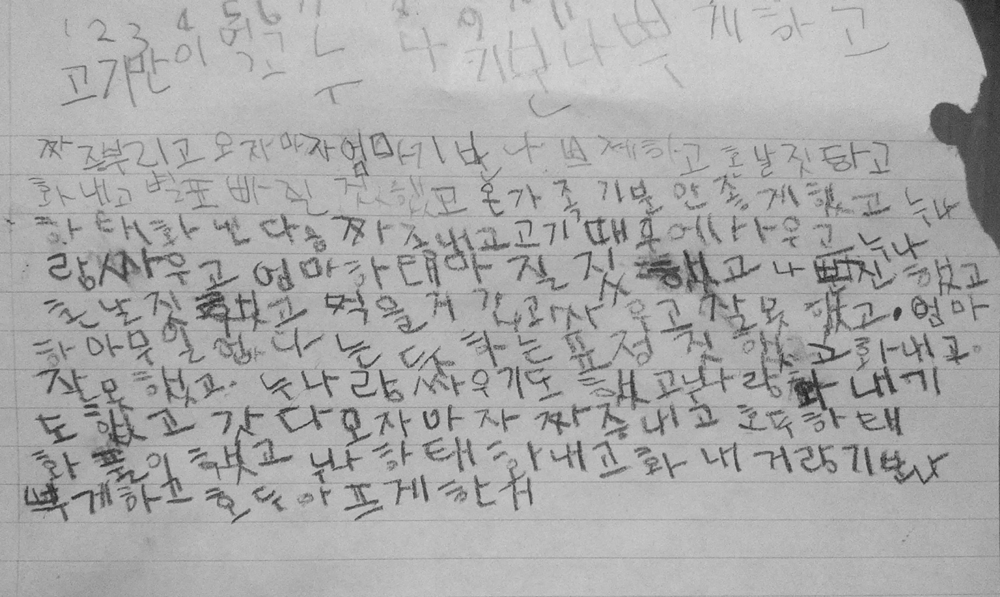 1 2 3 4 5 6
고기만이 먹고 누나 기분나쁘게하고
짜즈부리고 오자마자엄마기분나쁘게하고 혼날짓당고
화내고 벌표빠진 짓했고 온가족 기분안좋게했고 누나
하태화낸다음 짜증내고고기때무에사우고누나
랑싸우고 엄마하태마질짓했고 나쁜진했고
혼날짓했고 먹을거 갖고싸우고잘못했고.엄마
하마무일 나는 못하는 짓했고화내고.
잘못했고. 누나랑싸우기도했고누나랑화내기
도했고 갔다오자마자 짜증내고 호두하태
화풀이했고 누나하태화내고화내거랑기분나
쁘게하고 호두아프게한거